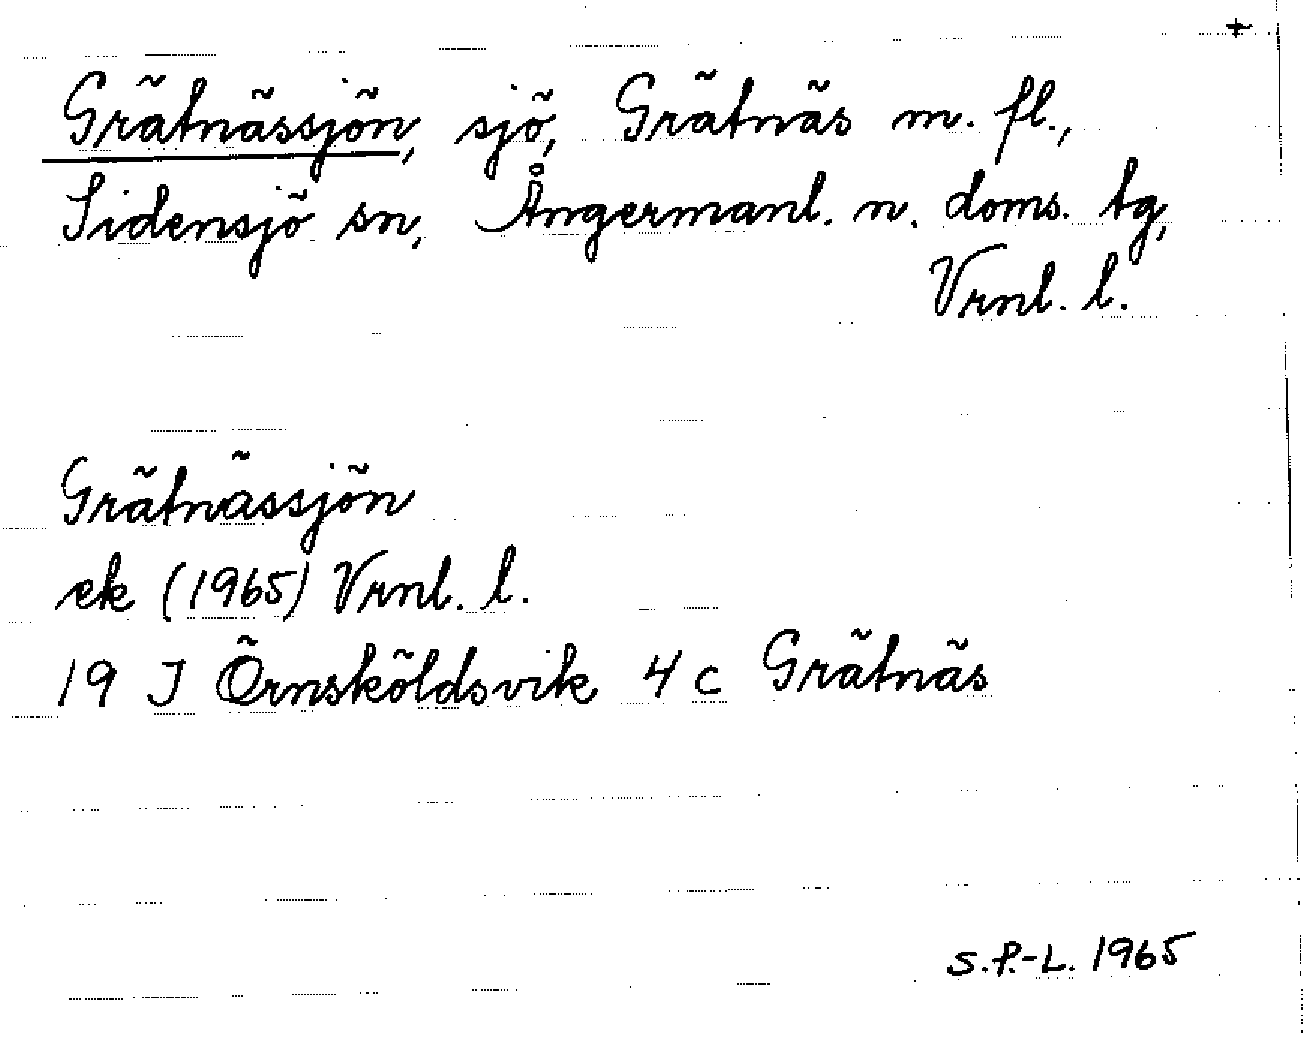 +
Grätnässjön, sjö, Grätnäs m. fl.,
Sidensjö sn, Ångermanl. n. doms. tg,
Vrnl. l.
Grätnässjön
ek (1965) Vrnl. l.
19 J Örnsköldsvik 4 c Grätnäs
S.P.-L. 1965